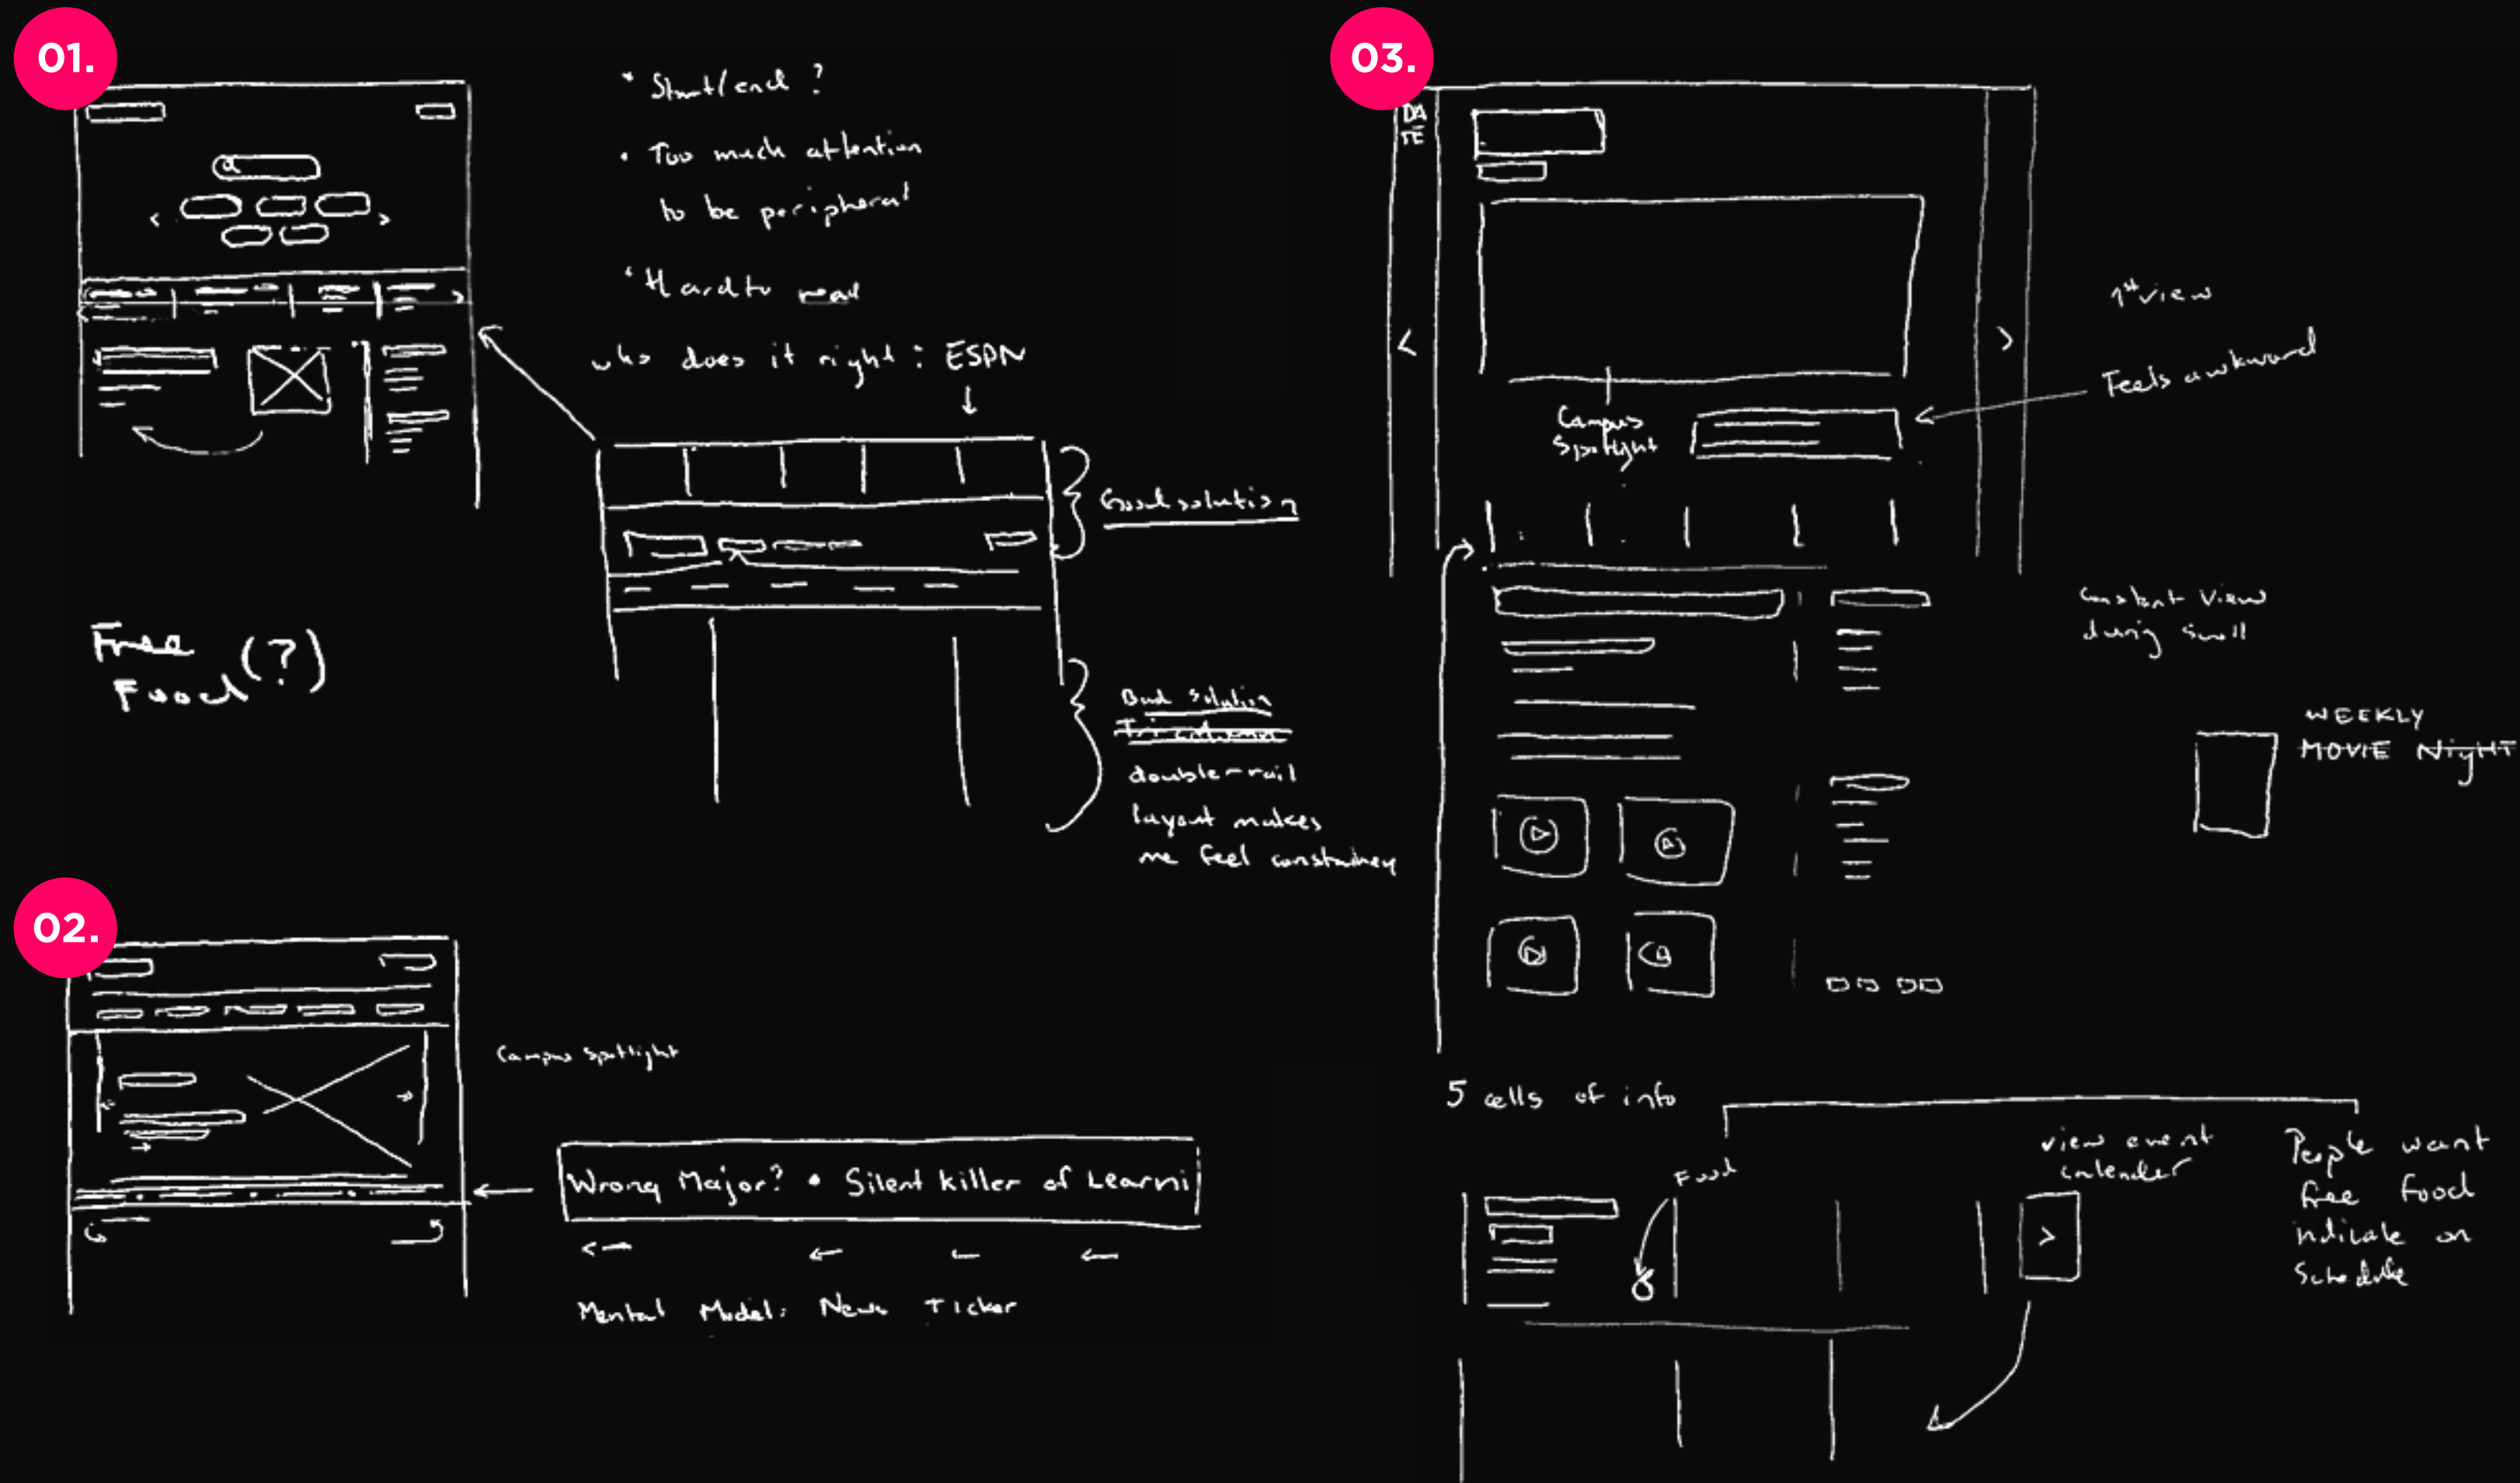 01.
* Start/end ?
• Too much attention
to be peripheral
* Hard to read
who does it right : ESPN
Good solution
Free
Food (?)
Bad solution
double-rail
layout makes
me feel
02.
Campus Spotlight
Wrong Major? • Silent killer of Learni
Mental Model: News Ticker
03.
DA
TE
1st view
Feels awkward
Campus
Spotlight
Constant View
during
WEEKLY
MOVIE NighT
5 cells of info
Food
view event
calender
People want
free food
indicate on
Schedule